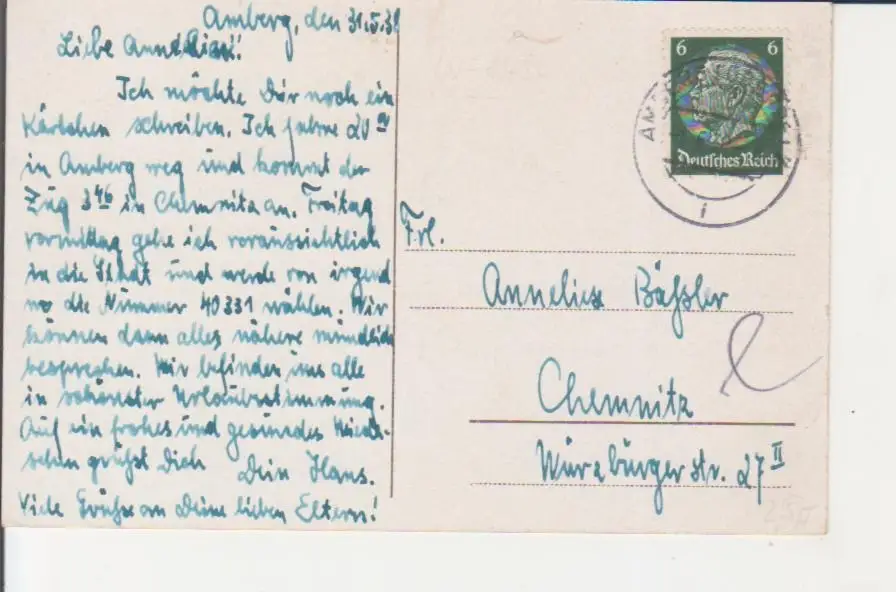 Amberg, den 31.5.38
Liebe Anneliese!
Ich möchte Dir noch ein
Kärtchen schreiben. Ich fahre 20
in Amberg weg und kommt der
Zug 3 46 in Chemnitz an. Freitag
vormittag gehe ich voraussichtlich
in die Stadt und werde von irgend
wo die Nummer 40331 wählen. Wir
können dann alles nähere mündlich
besprechen. Wir befinden uns alle
in schönster Urlaubsstimmung.
Auf ein frohes und gesundes Wieder-
sehen grüßt Dich Dein Hans.
Viele Grüße an Deine lieben Eltern!
6 6
Deutsches Reich
Frl.
Anneliese Bäßler
Chemnitz
Würzburger str. 27 II